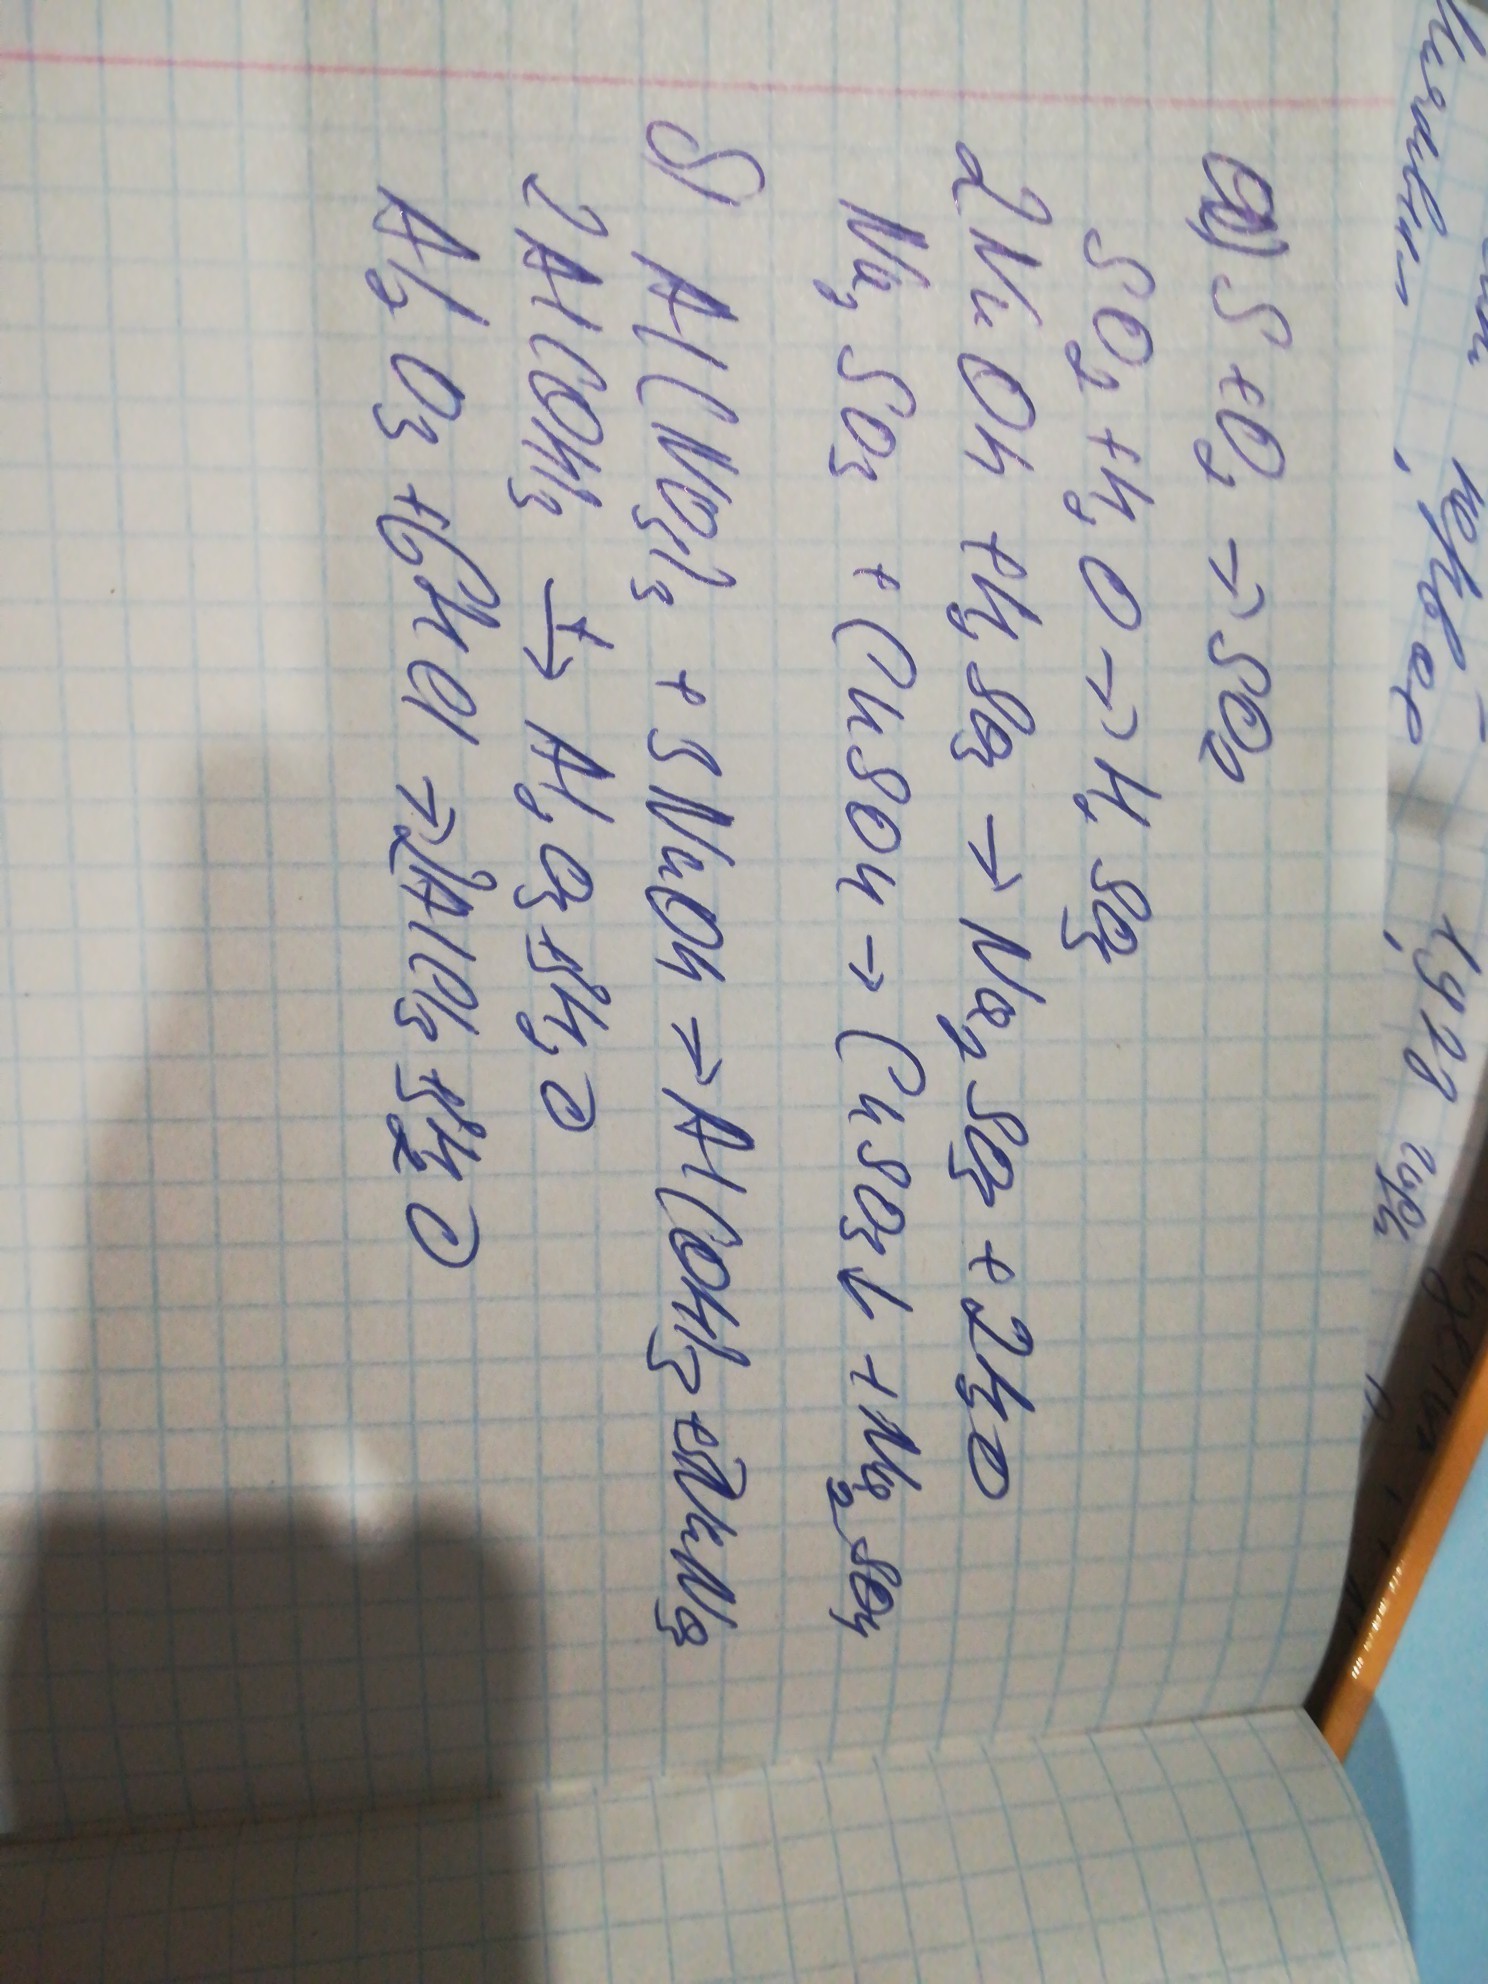 а) S + O₂ → SO₂
SO₂ + H₂O → H₂SO₃
2NaOH + H₂SO₃ → Na₂SO₃ + 2H₂O
Na₂SO₃ + CuSO₄ → CuSO₃↓ + Na₂SO₄
б) Al(NO₃)₃ + 3NaOH → Al(OH)₃ + 3NaNO₃
2Al(OH)₃ →ᵗ Al₂O₃ + 3H₂O
Al₂O₃ + 6HCl → 2AlCl₃ + 3H₂O